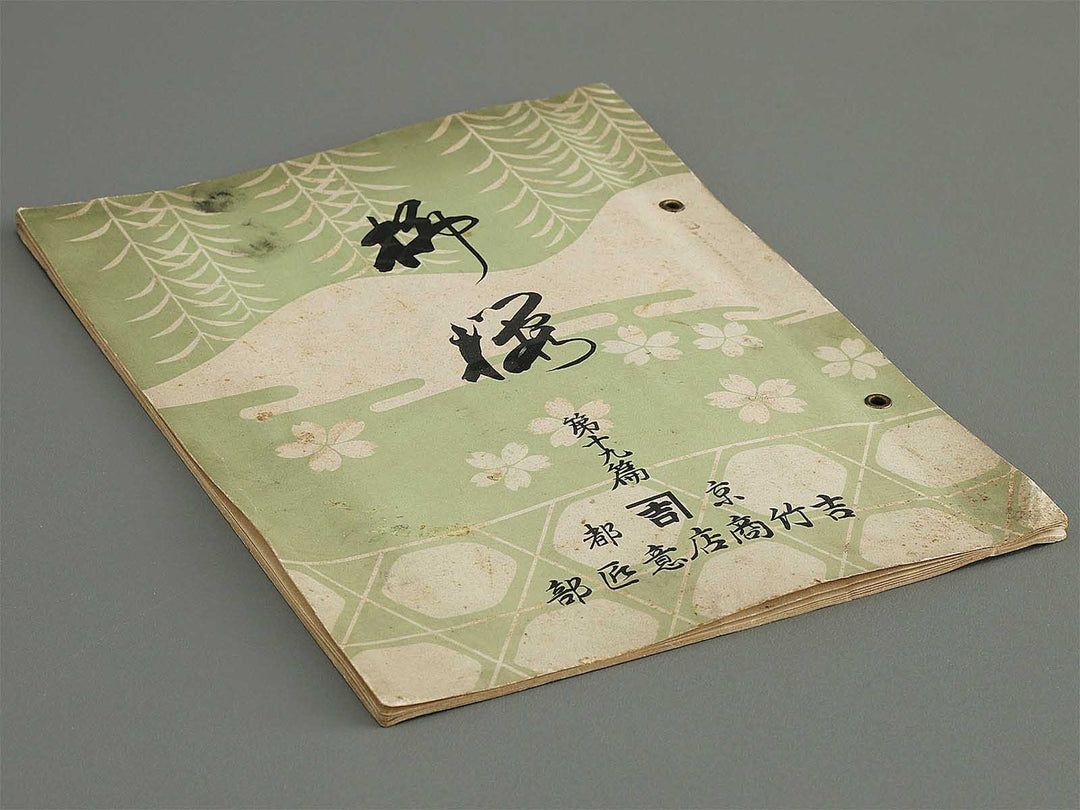 柳櫻
第十九篇
京都
吉竹商店意匠部